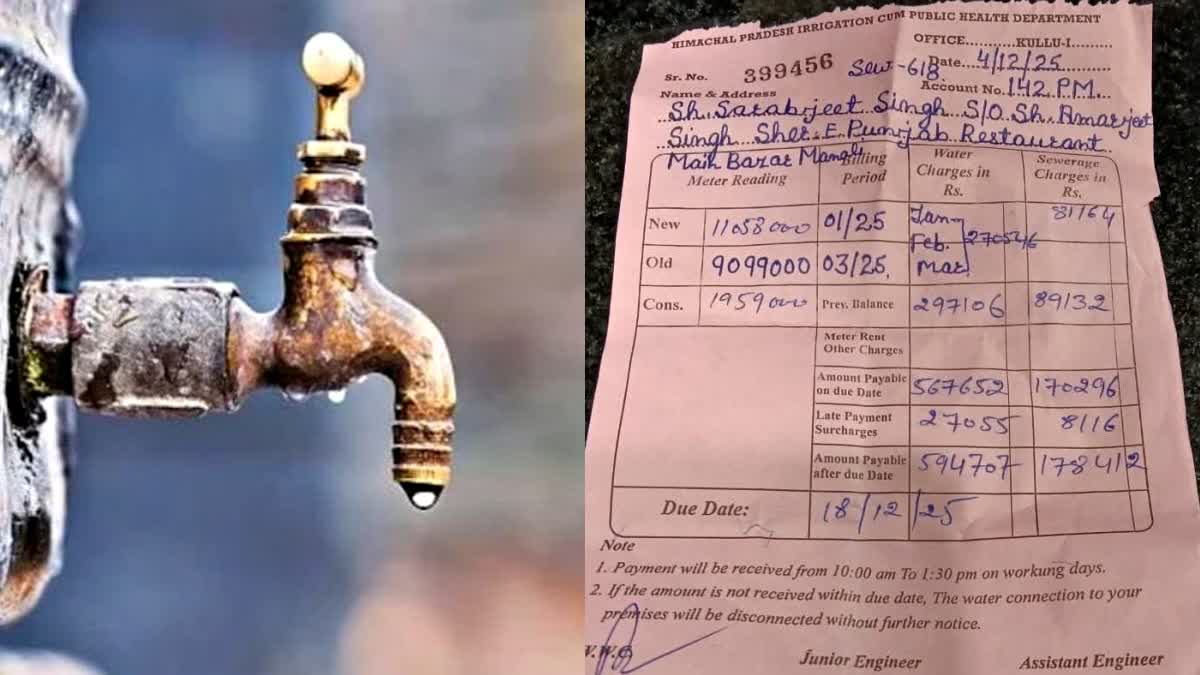 HIMACHAL PRADESH IRRIGATION CUM PUBLIC HEALTH DEPARTMENT
OFFICE...........KULLU-I.........
Sr. No. 399456 Sew-618 Date....4/12/25
Account No. 142 P.M.
Name & Address
Sh. Sarabjeet Singh S/O. Sh. Amarjeet
Singh Sher. E. Punjab Restaurant
Main Bazar
Meter Reading Billing Period Water Charges in Rs. Sewerage Charges in Rs.
New 11058000 01/25 Jan 81164
Feb. 270546
Old 9099000 03/25, Mar
Cons. 1959000 Prev. Balance 297106 89132
Meter Rent
Other Charges
Amount Payable on due Date 567652 170296
Late Payment Surcharges 27055 8116
Amount Payable after due Date 594707 178412
Due Date: 18/12/25
Note
1. Payment will be received from 10:00 am To 1:30 pm on workung days.
2. If the amount is not received within due date, The water connection to your
premises will be disconnected without further notice.
Junior Engineer Assistant Engineer